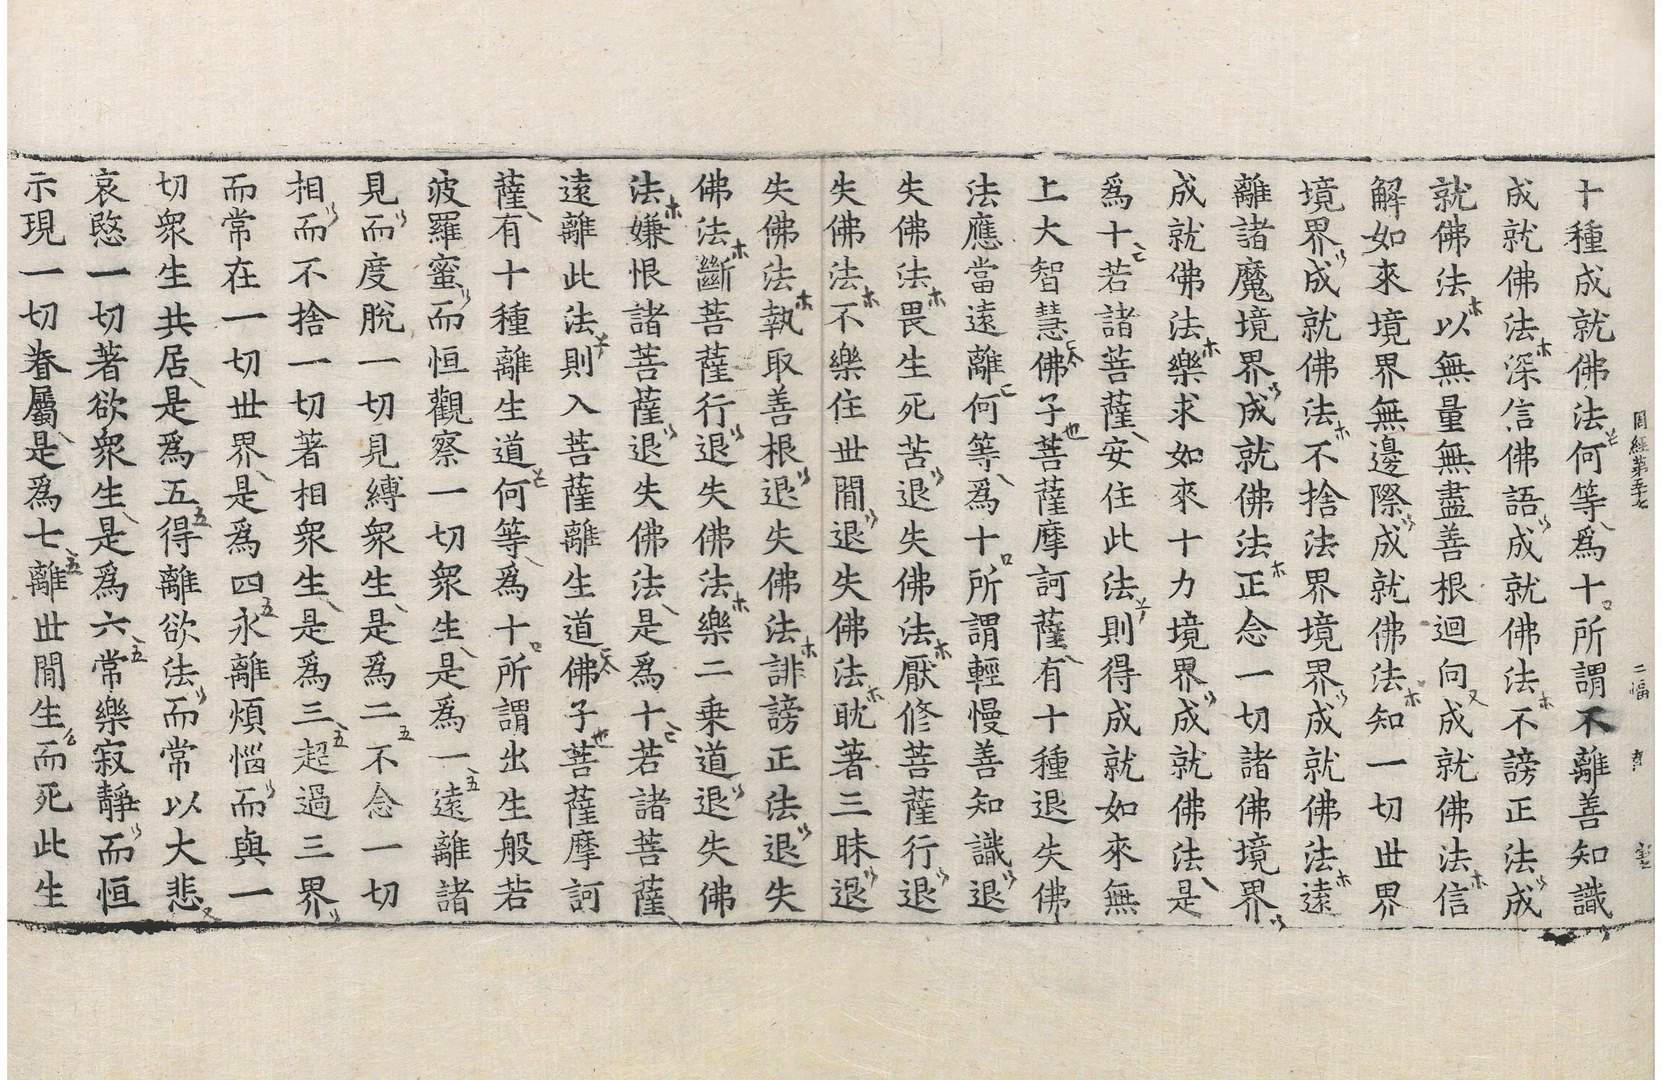 周經第五十七 二幅
十種成就佛法何等爲十所謂不離善知識
成就佛法深信佛語成就佛法不謗正法成
就佛法以無量無盡善根迴向成就佛法信
解如來境界無邊際成就佛法知一切世界
境界成就佛法不捨法界境界成就佛法遠
離諸魔境界成就佛法正念一切諸佛境界
成就佛法樂求如來十力境界成就佛法是
爲十若諸菩薩安住此法則得成就如來無
上大智慧佛子菩薩摩訶薩有十種退失佛
法應當遠離何等爲十所謂輕慢善知識退
失佛法畏生死苦退失佛法厭修菩薩行退
失佛法不樂住世閒退失佛法耽著三昧退
失佛法執取善根退失佛法誹謗正法退失
佛法斷菩薩行退失佛法樂二乗道退失佛
法嫌恨諸菩薩退失佛法是爲十若諸菩薩
遠離此法則入菩薩離生道佛子菩薩摩訶
薩有十種離生道何等爲十所謂出生般若
波羅蜜而恒觀察一切衆生是爲一遠離諸
見而度脫一切見縛衆生是爲二不念一切
相而不捨一切著相衆生是爲三超過三界
而常在一切世界是爲四永離煩惱而與一
切衆生共居是爲五得離欲法而常以大悲
哀愍一切著欲衆生是爲六常樂寂靜而恒
示現一切眷屬是爲七離世閒生而死此生